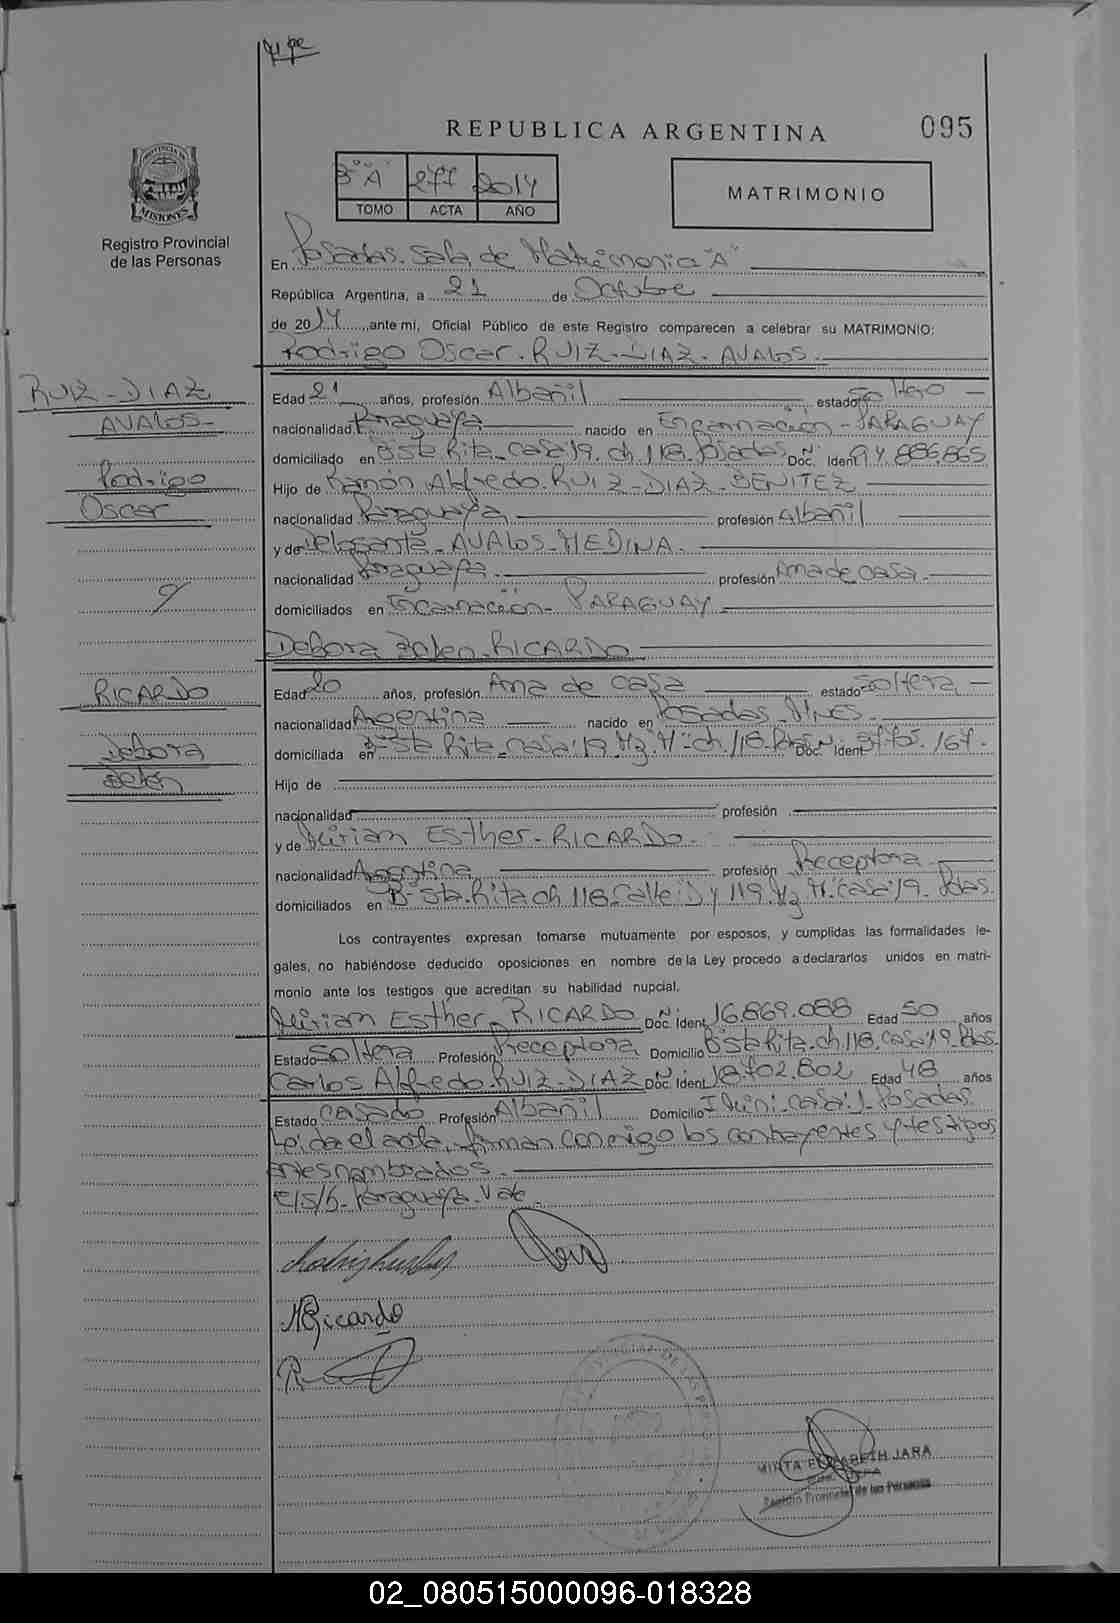 REPUBLICA ARGENTINA
095
3º "A" 277 2014
TOMO ACTA AÑO
MATRIMONIO
PROVINCIA DE
MISIONES
Registro Provincial
de las Personas
En Posadas. Sala de Matrimonio "A"
República Argentina, a 21 de Octubre
de 2014, ante mí, Oficial Público de este Registro comparecen a celebrar su MATRIMONIO:
Rodrigo Oscar. RUIZ-DIAZ-AVALOS.
RUIZ-DIAZ
AVALOS-
Rodrigo
Oscar
Edad 21 años, profesión Albañil estado soltero
nacionalidad Paraguaya nacido en Encarnación-PARAGUAY
domiciliado en Bºsta Rita-casa 19. ch. 118. Posadas Doc. Ident. 94.886.865
Hijo de Ramón Alfredo. RUIZ-DIAZ-BENITEZ
nacionalidad Paraguaya profesión Albañil
y de Delosanta-AVALOS-MEDINA.
nacionalidad Paraguaya. profesión Ama de casa.
domiciliados en Encarnación-PARAGUAY
y
Debora Belen-RICARDO
RICARDO
Debora
Belén
Edad 20 años, profesión Ama de casa estado Soltera
nacionalidad Argentina nacido en Posadas Mnes.
domiciliada en Bº Sta Rita-casa: 19. Mz. ch. 118. Doc. Ident. 167.
Hijo de
nacionalidad profesión
y de Mirian Esther-RICARDO.
nacionalidad Argentina profesión Receptora
domiciliados en Bº Sta. Rita ch 118-Calle D y 119. Mz casa 19. Pdas.
Los contrayentes expresan tomarse mutuamente por esposos, y cumplidas las formalidades le-
gales, no habiéndose deducido oposiciones en nombre de la Ley procedo a declararlos unidos en matri-
monio ante los testigos que acreditan su habilidad nupcial.
Mirian Esther-RICARDO Doc. Ident. 16.869.088 Edad 50 años
Estado Soltera Profesión Receptora Domicilio Bºsta Rita. ch. 118. casa 19. Pdas.
Carlos Alfredo. RUIZ DIAZ Doc. Ident. 18.702.802 Edad 48 años
Estado Casado Profesión Albañil Domicilio casa: Posadas
Leida el acta, firman conmigo los contrayentes y testigos
antes nombrados.
E/S/b-Paraguaya-Vale.
MRicardo
MIRTA ELIZABETH JARA
Registro Provincial de las Personas
02_080515000096-018328